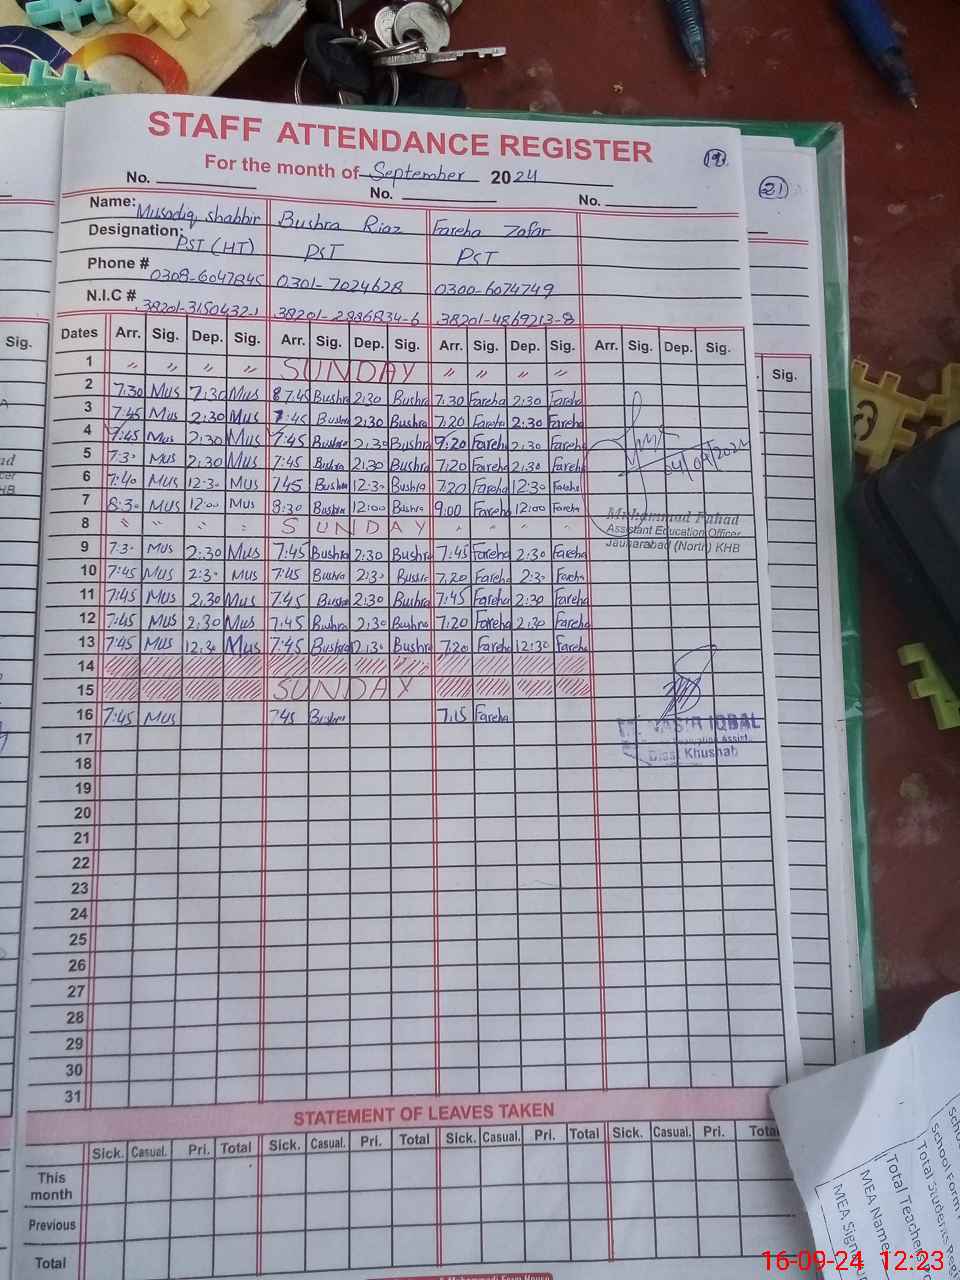 STAFF ATTENDANCE REGISTER
19
For the month of September 2024
21
No. No. No.
Name: Musadiq Shabbir Bushra Riaz Fareha Zafar
Designation: PST (HT) PST PST
Phone # 0308-6047845 0301-7024628 0300-6074749
N.I.C # 38201-3150432-1 38201-2886834-6 38201-4869213-8
Dates Arr. Sig. Dep. Sig. Arr. Sig. Dep. Sig. Arr. Sig. Dep. Sig. Arr. Sig. Dep. Sig.
Sig.
Sig.
1 " " " " SUNDAY " " " "
2 7:30 Mus 2:30 Mus 7:45 Bushra 2:30 Bushra 7:30 Fareha 2:30 Fareha
3 7:45 Mus 2:30 Mus 7:45 Bushra 2:30 Bushra 7:20 Fareha 2:30 Fareha
4 7:45 Mus 2:30 Mus 7:45 Bushra 2:30 Bushra 7:20 Fareha 2:30 Fareha
04/09/2024
5 7:30 Mus 2:30 Mus 7:45 Bushra 2:30 Bushra 7:20 Fareha 2:30 Fareha
6 7:40 Mus 12:30 Mus 745 Bushra 12:30 Bushra 7:20 Fareha 12:30 Fareha
7 8:30 Mus 12:00 Mus 8:30 Bushra 12:00 Bushra 9:00 Fareha 12:00 Fareha
Muhammad Fahad
Assistant Education Officer
Jauharabad (North) KHB
8 " " " " SUNDAY " " " "
9 7:30 Mus 2:30 Mus 7:45 Bushra 2:30 Bushra 7:45 Fareha 2:30 Fareha
10 7:45 Mus 2:30 Mus 7:45 Bushra 2:30 Bushra 7:20 Fareha 2:30 Fareha
11 7:45 Mus 2:30 Mus 7:45 Bushra 2:30 Bushra 7:45 Fareha 2:30 Fareha
12 7:45 Mus 2:30 Mus 7:45 Bushra 2:30 Bushra 7:20 Fareha 2:30 Fareha
13 7:45 Mus 12:30 Mus 7:45 Bushra 12:30 Bushra 7:20 Fareha 12:30 Fareha
14
15 SUNDAY
16 7:45 Mus 745 Bushra 7:15 Fareha
YASIR IQBAL
Dist Khushab
17
18
19
20
21
22
23
24
25
26
27
28
29
30
31
STATEMENT OF LEAVES TAKEN
Sick. Casual. Pri. Total Sick. Casual. Pri. Total Sick. Casual. Pri. Total Sick. Casual. Pri. Total
This
month
Previous
Total
School Form
Total Students
Total Teachers
MEA Name
MEA Sign
16-09-24 12:23